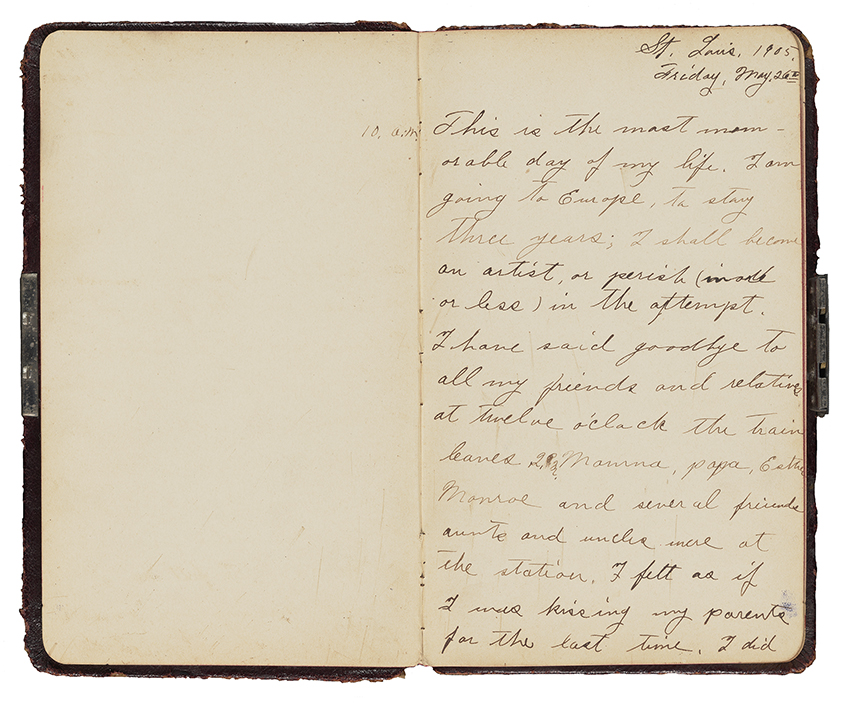 St. Louis, 1905.
Friday, May, 26th
10. a.m. This is the most mem-
orable day of my life. I am
going to Europe, to stay
three years; I shall become
an artist, or perish (more
or less) in the attempt.
I have said goodbye to
all my friends and relatives
at twelve o'clock the train
leaves Mamma, papa, Esther
Monroe and several friends
aunts and uncles were at
the station. I felt as if
I was kissing my parents
for the last time. I did